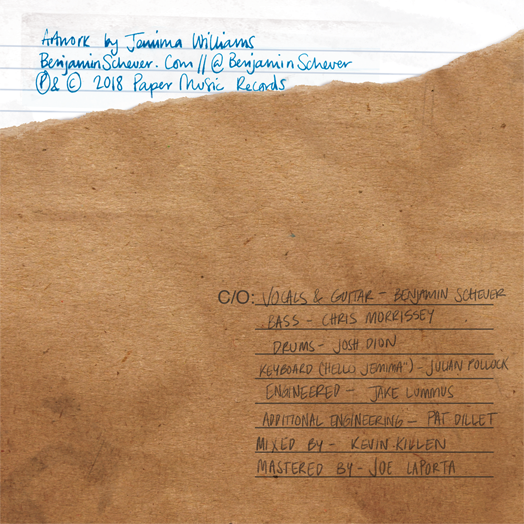 Artwork by Jemima Williams
BenjaminScheuer.Com // @BenjaminScheuer
℗ & © 2018 Paper Music Records
C/O: VOCALS & GUITAR - BENJAMIN SCHEUER
BASS - CHRIS MORRISSEY
DRUMS - JOSH DION
KEYBOARD (HELLO JEMIMA") - JULIAN POLLOCK
ENGINEERED - JAKE LUMMUS
ADDITIONAL ENGINEERING - PAT DILLET
MIXED BY - KEVIN KILLEN
MASTERED BY - JOE LAPORTA